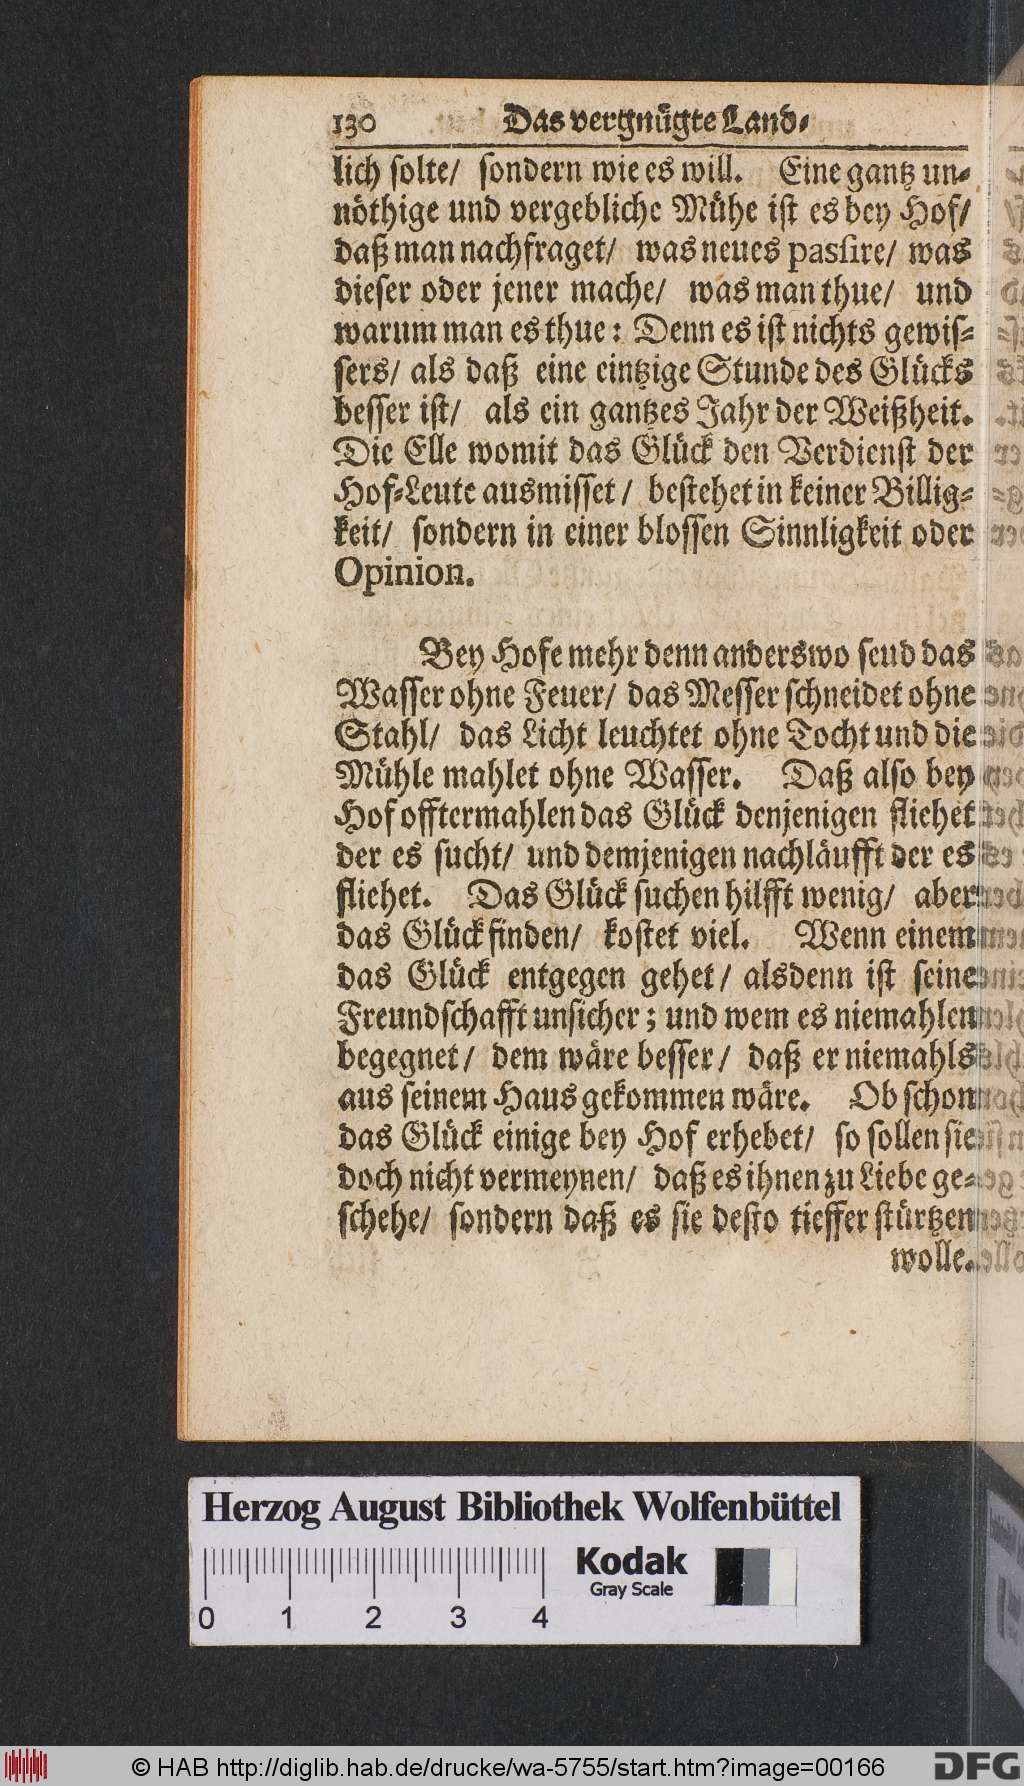 130 Das vergnügte Land-
lich solte/ sondern wie es will. Eine gantz un-
nöthige und vergebliche Mühe ist es bey Hof/
daß man nachfraget/ was neues passire/ was
dieser oder jener mache/ was man thue/ und
warum man es thue: Denn es ist nichts gewis-
sers/ als daß eine eintzige Stunde des Glücks
besser ist/ als ein gantzes Jahr der Weißheit.
Die Elle womit das Glück den Verdienst der
Hof-Leute ausmisset/ bestehet in keiner Billig-
keit/ sondern in einer blossen Sinnligkeit oder
Opinion.
Bey Hofe mehr denn anderswo seud das
Wasser ohne Feuer/ das Messer schneidet ohne
Stahl/ das Licht leuchtet ohne Tocht und die
Mühle mahlet ohne Wasser. Daß also bey
Hof offtermahlen das Glück denjenigen fliehet
der es sucht/ und demjenigen nachläufft der es
fliehet. Das Glück suchen hilfft wenig/ aber
das Glück finden/ kostet viel. Wenn einem
das Glück entgegen gehet/ alsdenn ist seine
Freundschafft unsicher; und wem es niemahlen
begegnet/ dem wäre besser/ daß er niemahls
aus seinem Haus gekommen wäre. Ob schon
das Glück einige bey Hof erhebet/ so sollen sie
doch nicht vermeynen/ daß es ihnen zu Liebe ge-
schehe/ sondern daß es sie desto tieffer stürtzen
wolle.
Herzog August Bibliothek Wolfenbüttel
Kodak
Gray Scale
0 1 2 3 4
© HAB http://diglib.hab.de/drucke/wa-5755/start.htm?image=00166
DFG